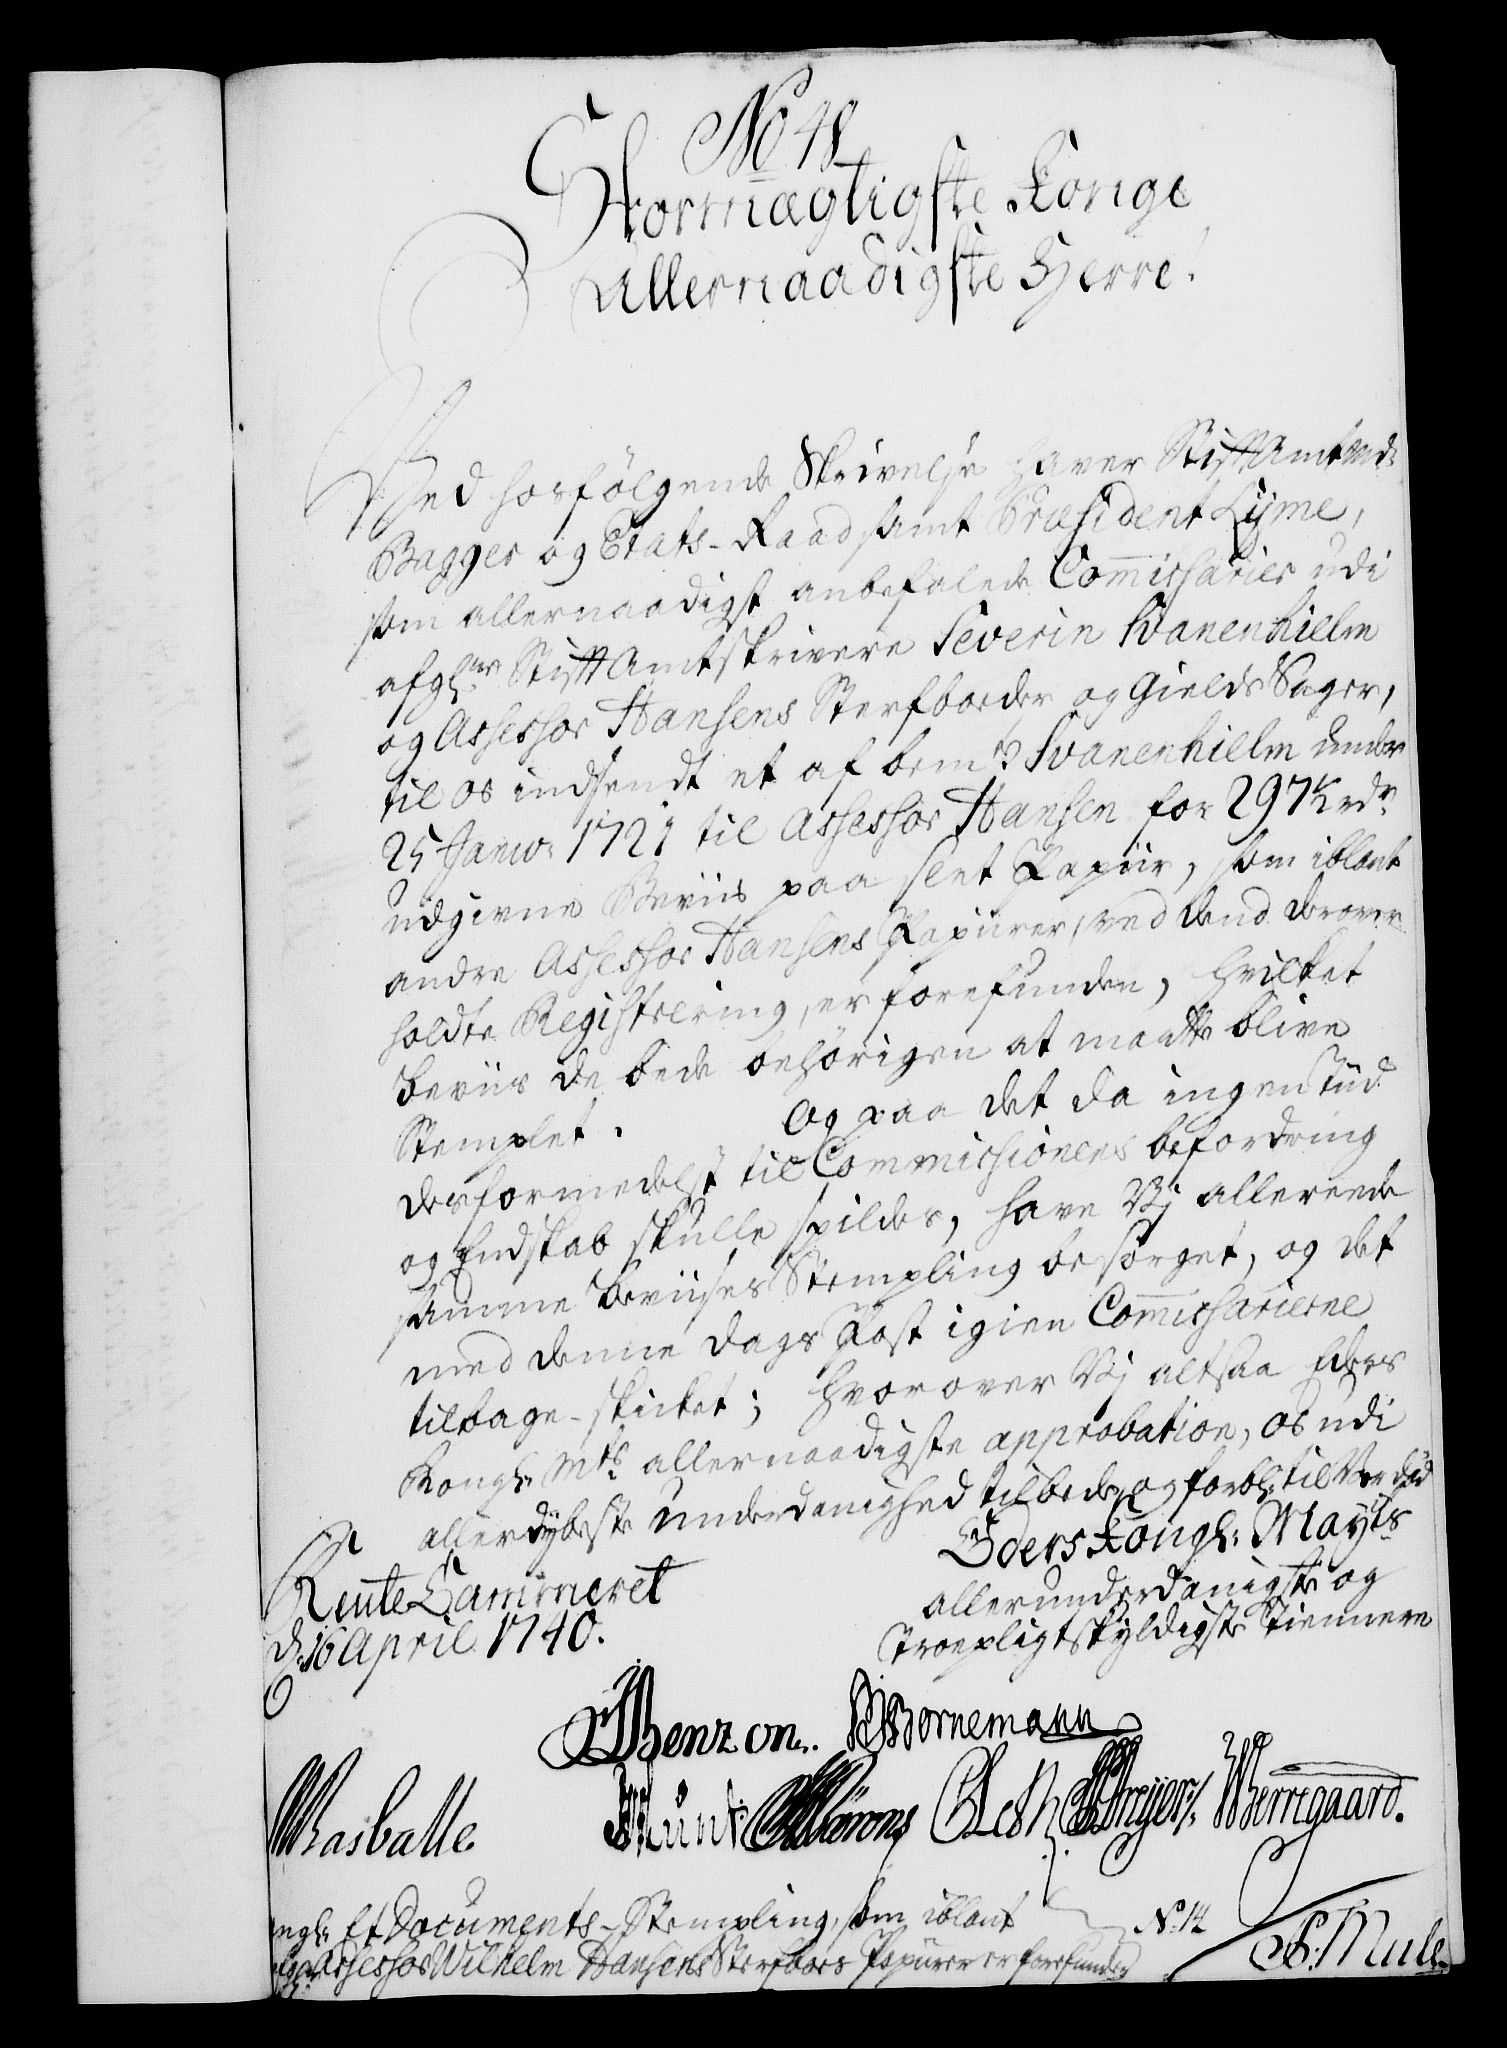 No 48
Stormægtigste Konge
Allernaadigste Herre!
Ved hosfølgende Skrivelse haver Stiftamtmd:
Bagger og Etats-Raad samt Præsident Lyme,
som allernaadigst anbefalede Commissarier udi
afgl: Stiftamtskrivere Severin Svanenhielm
og Assessor Hansens Sterfboeder og Gields Sager,
til os indsendt et af bemte Svanenhielm under
25 Janu: 1721 til Assessor Hansen for 297½ rdr
udgivne Beviis paa slet Papiir, som iblant
andre Assessor Hansens Papiirer, ved dend derover
holdte Registrering, er forefunden, hvilket
beviis de bede behørigen at maatte blive
Stemplet. Og paa det da ingen Tiid
desformedelst til Commissionens befordring
og Endskab skulle spildes, have Vj allereede
samme beviises Stempling besørget, og det
med denne dags Post igien Commissarierne
tilbage-skicket; hvorover Vj altsaa Eders
Kongl: Mts allernaadigste approbation, os udi
allerdybeste underdanighed tilbede, og forbl: til Vor död
Eders Kongl: Mayts
allerunderdanigste og
troepligtskyldigste Tiennere
Rente Cammeret
d: 16 April 1740.
Benzon. Bornemann
Masballe Munk Bärens CLeth Dreyer Werregaard.
angl: Et Documents-Stempling, som iblant
afgl: Assessor Wilhelm Hansens Sterfboes Papiirer er forefunden
No. 14
S. Mule.